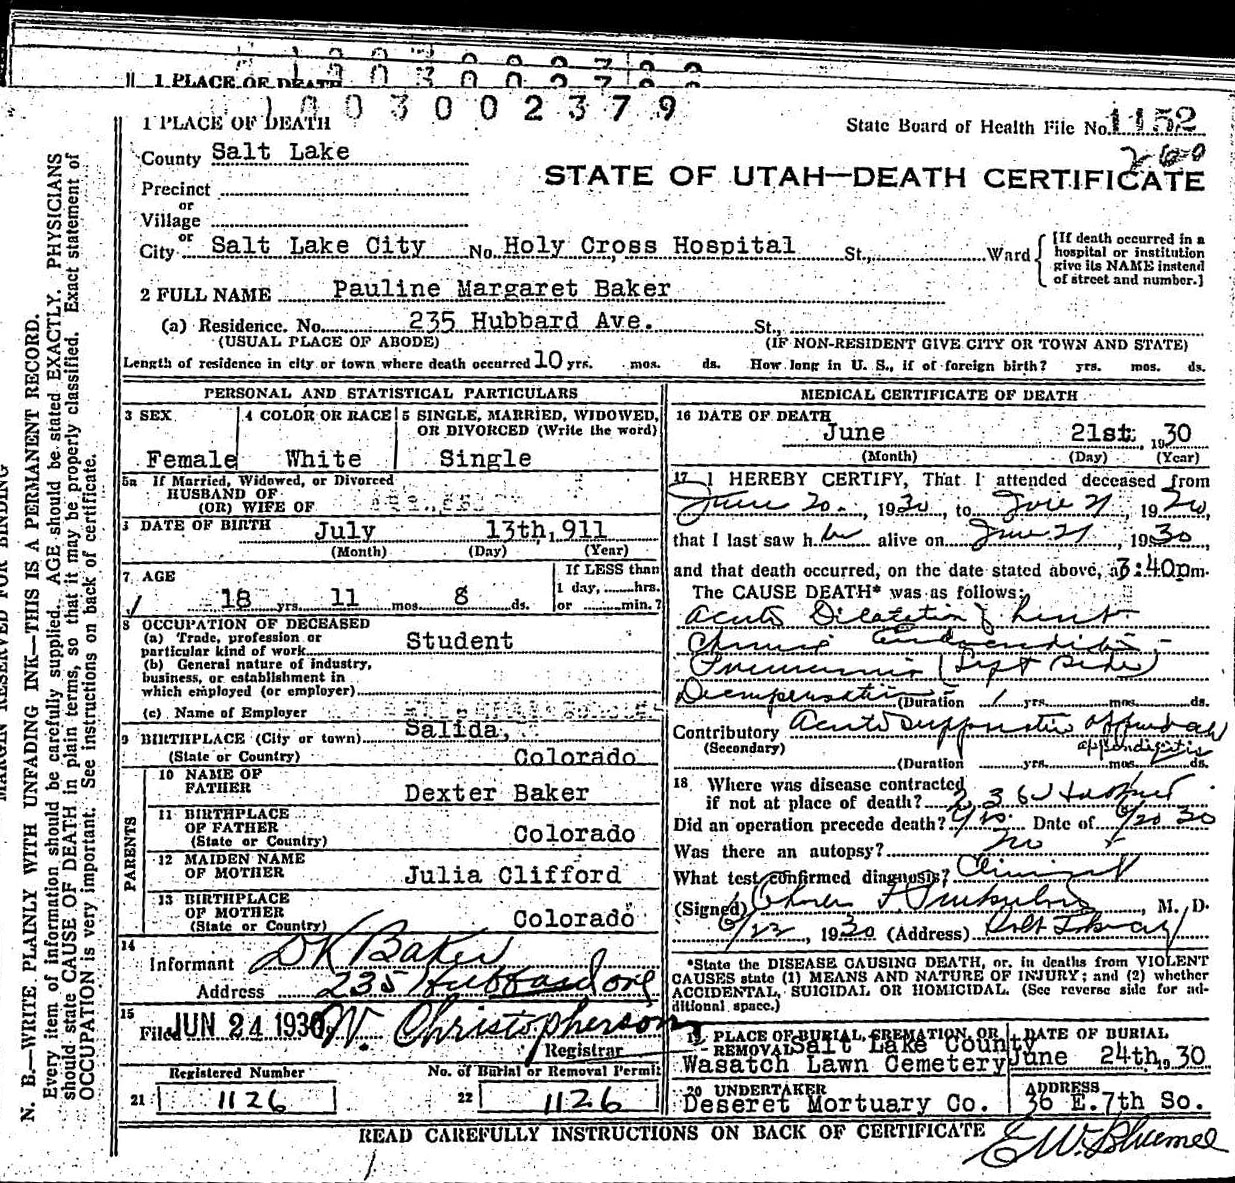 1 PLACE OF DEATH
1003002379
1 PLACE OF DEATH
State Board of Health File No. 1152
260
County Salt Lake
STATE OF UTAH—DEATH CERTIFICATE
Precinct
or
Village
or
City Salt Lake City No. Holy Cross Hospital St., Ward
[If death occurred in a hospital or institution give its NAME instead of street and number.]
2 FULL NAME Pauline Margaret Baker
(a) Residence. No. 235 Hubbard Ave. St.,
(USUAL PLACE OF ABODE) (IF NON-RESIDENT GIVE CITY OR TOWN AND STATE)
Length of residence in city or town where death occurred 10 yrs. mos. ds. How long in U. S., if of foreign birth? yrs. mos. ds.
PERSONAL AND STATISTICAL PARTICULARS
3 SEX 4 COLOR OR RACE 5 SINGLE, MARRIED, WIDOWED, OR DIVORCED (Write the word)
Female White Single
5a If Married, Widowed, or Divorced
HUSBAND OF
(OR) WIFE OF
DATE OF BIRTH July 13th, 911
(Month) (Day) (Year)
7 AGE
If LESS than
1 day, hrs.
or min.?
18 yrs. 11 mos. 8 ds.
8 OCCUPATION OF DECEASED
(a) Trade, profession or
particular kind of work Student
(b) General nature of industry,
business, or establishment in
which employed (or employer)
(c) Name of Employer
9 BIRTHPLACE (City or town) Salida,
(State or Country) Colorado
PARENTS
10 NAME OF
FATHER Dexter Baker
11 BIRTHPLACE
OF FATHER
(State or Country) Colorado
12 MAIDEN NAME
OF MOTHER Julia Clifford
13 BIRTHPLACE
OF MOTHER
(State or Country) Colorado
14
Informant DK Baker
Address 235 Hubbard Ave
15
Filed JUN 24 1930 W. Christopherson
Registrar
Registered Number No. of Burial or Removal Permit
21 1126 22 1126
MEDICAL CERTIFICATE OF DEATH
16 DATE OF DEATH
June 21st, 1930
(Month) (Day) (Year)
17 I HEREBY CERTIFY, That I attended deceased from
June 20, 1930, to June 21, 1930,
that I last saw her alive on June 21, 1930,
and that death occurred, on the date stated above, at 3:40pm.
The CAUSE DEATH* was as follows:
Acute Dilatation of heart
Chronic Endocarditis -
Pneumonia (Left Side)
Decompensation (Duration 1 yrs. mos. ds.
Contributory Acute suppurative
(Secondary) appendicitis
(Duration yrs. mos. ds.
18 Where was disease contracted
if not at place of death?
Did an operation precede death? Yes. Date of 6/20 30
Was there an autopsy? no
What test confirmed diagnosis? Clinical
(Signed) , M. D.
6/22, 1930 (Address) Salt Lake City
*State the DISEASE CAUSING DEATH, or, in deaths from VIOLENT
CAUSES state (1) MEANS AND NATURE OF INJURY; and (2) whether
ACCIDENTAL, SUICIDAL OR HOMICIDAL. (See reverse side for additional space.)
19 PLACE OF BURIAL, CREMATION, OR REMOVAL DATE OF BURIAL
Salt Lake County
Wasatch Lawn Cemetery June 24th, 1930
20 UNDERTAKER ADDRESS
Deseret Mortuary Co. 36 E. 7th So.
READ CAREFULLY INSTRUCTIONS ON BACK OF CERTIFICATE
MARGIN RESERVED FOR BINDING
N. B.—WRITE PLAINLY WITH UNFADING INK—THIS IS A PERMANENT RECORD.
Every item of information should be carefully supplied. AGE should be stated EXACTLY. PHYSICIANS
should state CAUSE OF DEATH in plain terms, so that it may be properly classified. Exact statement of
OCCUPATION is very important. See instructions on back of certificate.